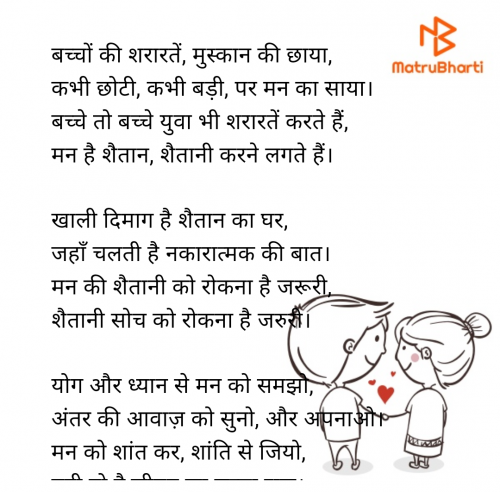 MatruBharti
बच्चों की शरारतें, मुस्कान की छाया,
कभी छोटी, कभी बड़ी, पर मन का साया।
बच्चे तो बच्चे युवा भी शरारतें करते हैं,
मन है शैतान, शैतानी करने लगते हैं।
खाली दिमाग है शैतान का घर,
जहाँ चलती है नकारात्मक की बात।
मन की शैतानी को रोकना है जरूरी,
शैतानी सोच को रोकना है जरुरी।
योग और ध्यान से मन को समझो,
अंतर की आवाज़ को सुनो, और अपनाओ।
मन को शांत कर, शांति से जियो,